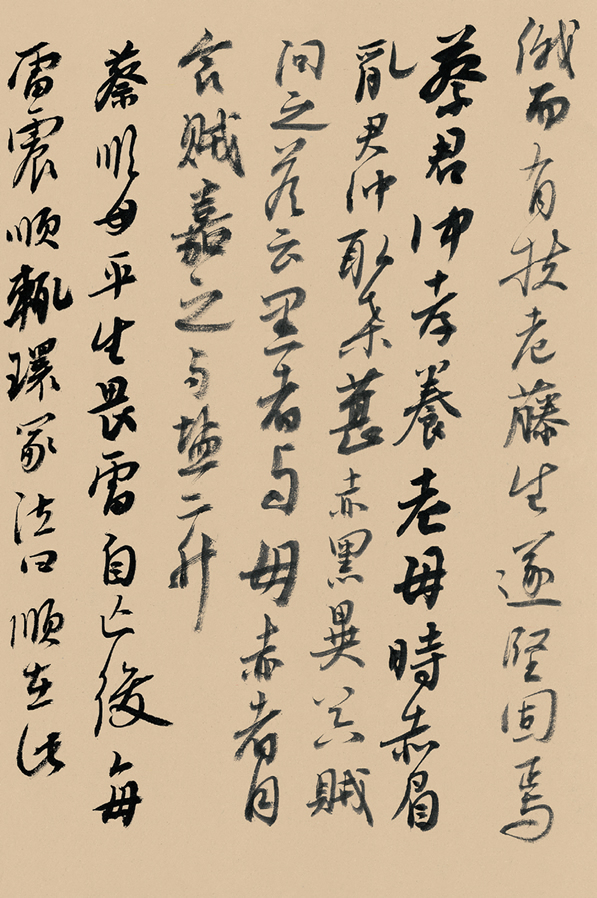 俄而有扶老藤生遂堅固焉
蔡君仲孝養老母時赤眉
亂君仲取桑葚赤黑異器賊
問之答云黑者与母赤者自
食賊嘉之与鹽二升
蔡順母平生畏雷自亡後每
雷震順輒環冢泣曰順在此